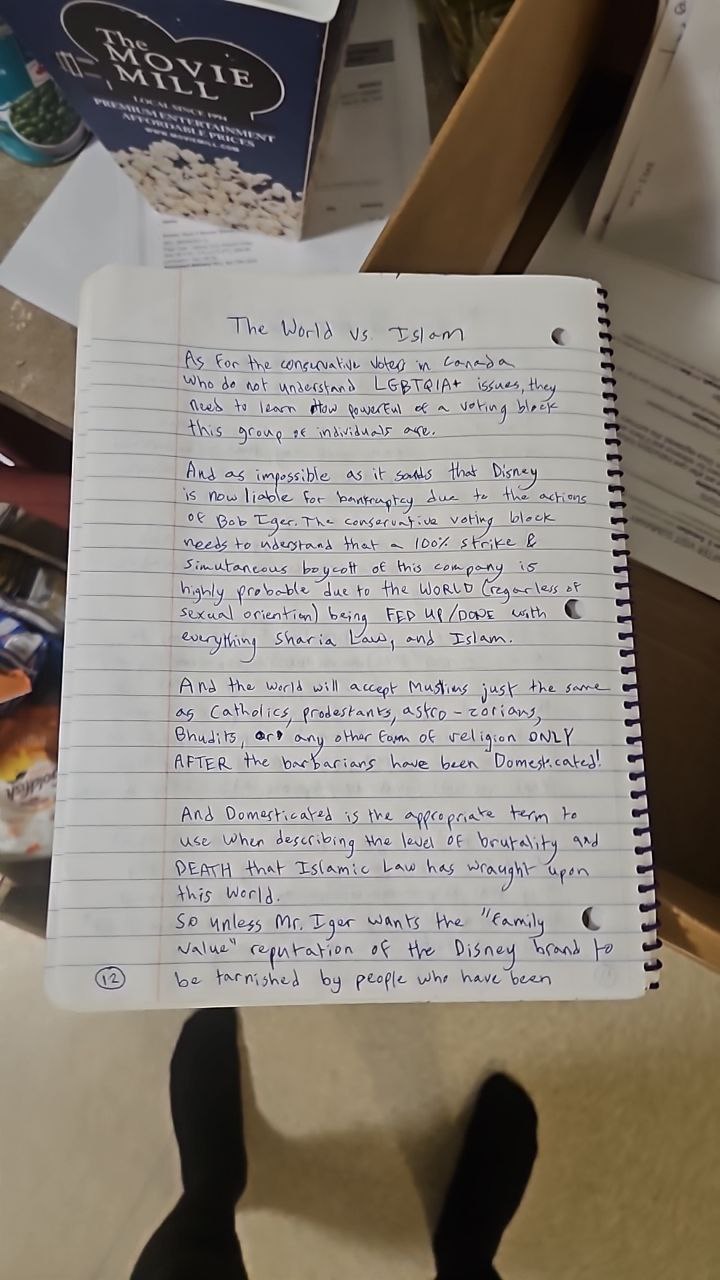 The
MOVIE
MILL
LOCAL SINCE 1994
PREMIUM ENTERTAINMENT
AFFORDABLE PRICES
WWW.MOVIEMILL.COM
The World vs. Islam
As for the conservative voters in Canada
who do not understand LGBTQIA+ issues, they
need to learn How powerful of a voting block
this group of individuals are.
And as impossible as it sounds that Disney
is now liable for bankruptcy due to the actions
of Bob Iger. The conservative voting block
needs to uderstand that a 100% strike &
simutaneous boycott of this company is
highly probable due to the WORLD (regarless of
sexual oriention) being FED UP/DONE with
everything Sharia Law, and Islam.
And the world will accept Muslims just the same
as Catholics, prodestants, astro-zorians,
Bhudits, or any other form of religion ONLY
AFTER the barbarians have been Domesticated!
And Domesticated is the appropriate term to
use when describing the level of brutality and
DEATH that Islamic Law has wraught upon
this world.
So unless Mr. Iger wants the "family
value" reputation of the Disney brand to
be tarnished by people who have been
12
goldfish